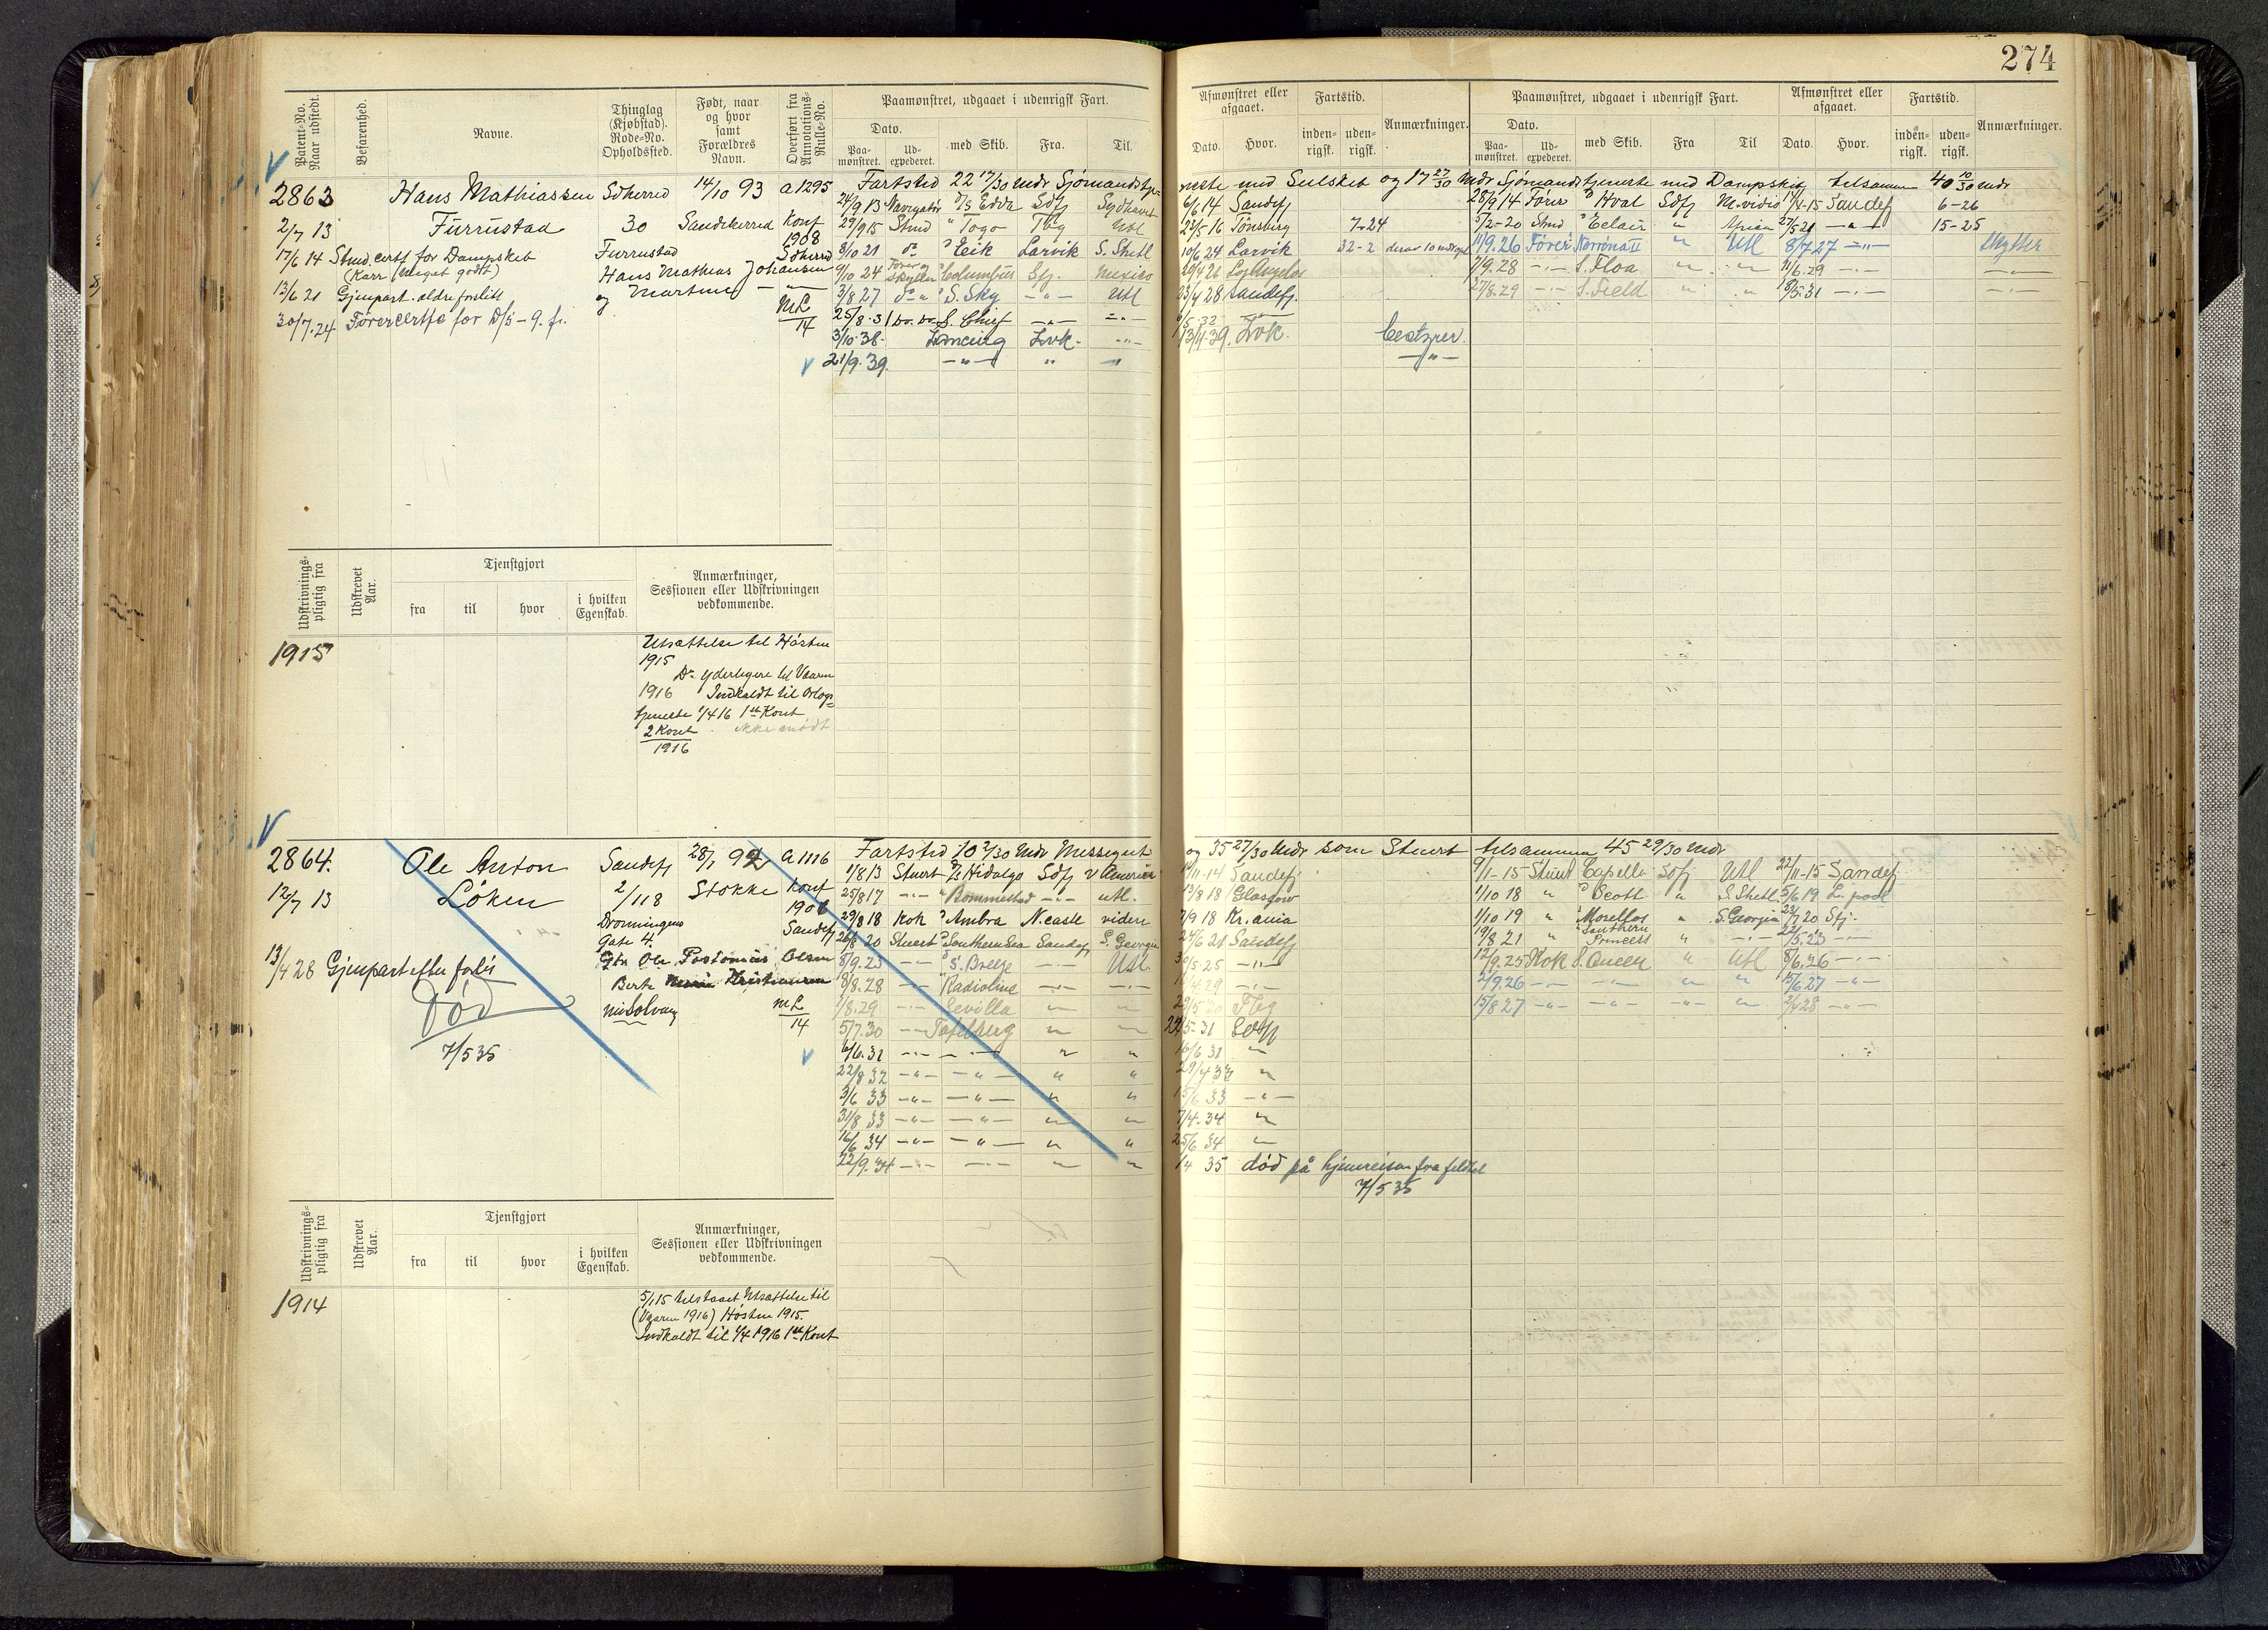 274
Patent-No. Naar udstedt.
Befarenhed.
Navne.
Thinglag (Kjøbstad). Rode-No. Opholdssted.
Født, naar og hvor samt Forældres Navn.
Overført fra Annotations-Rulle-No.
Paamønstret, udgaaet i udenrigsk Fart.
Dato.
Paamønstret.
Udexpederet.
med Skib.
Fra.
Til.
Afmønstret eller afgaaet.
Dato.
Hvor.
Fartstid.
indenrigsk.
udenrigsk.
Anmærkninger.
Paamønstret, udgaaet i udenrigsk Fart.
Dato.
Paamønstret.
Udexpederet.
med Skib.
Fra
Til
Afmønstret eller afgaaet.
Dato.
Hvor.
Fartstid.
indenrigsk.
udenrigsk.
Anmærkninger.
2863 Hans Mathiassen Sdherred 14/10 93 a 1295
2/7 13 Furrustad 30 Sandeherred Konf 1908 Sdherred
17/6 14 Stmd. certf for Dampskib Furrustad
(Kar: Meget godt) Hans Mathias Johansen
13/6 21 Gjenpart. aldre forslitt og Martine — " —
30/7.24 Førercertfc for D/S - 9. fi. ML/14
Fartstid 22 17/30 Mdr Sjømandstjeneste med Seilskib og 17 23/30 Mdr Sjømandstjeneste med Dampskib tilsammen 40 10/30 Mdr
24/9 13 Navigatør D/S Edda Sdfj Sydhavet 6/6 14 Sandefj
29/9 15 Stmd " Togo Tbg Utl 22/5 16 Tønsberg 7-24
8/10 21 do " Eik Larvik S. Shetl 10/6 24 Larvik 32-2
9/10 24 Fører og Skytter " Columbus Sfj. Mexico 20/4 26 Los Angelos
3/8 27 do " " S. Sky — " — Utl 23/4 28 Sandefj.
25/8.31 Do. Do. S. Chief — " — — " —
3/10.38 Lancing Lvk. — " — 13/4.39. Lvk.
21/9.39. — " — " "
28/9 14 Fører " Hval Sdfj M. vidio 14/4-15 Sandefj 6-26
5/2-20 Stmd " Eclair " Africa 27/5 21 — " — 15-25
11/9.26 Fører Norrøna II " Utl 8/7 27 — " — Skytter
7/9.28 — " — S. Floa " " 11/6.29 — " — — " —
27/8.29 — " — S. Field " " 8/5.31 — " — — " —
Udskrivningspligtig fra
Udskrevet Aar.
Tjenstgjort
fra
til
hvor
i hvilken Egenskab.
Anmærkninger, Sessionen eller Udskrivningen vedkommende.
1915
Utsættelse til Høsten
1915
Do yderligere til Vaaren
1916 Indkaldt til Orlogs=
tjeneste 1/4 16 1ste Kont
2 Kont ikke mødt
1916
2864. Ole Anton Sandefj 28/1 92 a 1116
12/7 13 Løken 2/118 Stokke Konf
Dronningens Gate 4. Sandefj
13/4 28 Gjenpart efter forlis
Død
7/5 35
Olsen
Berte
ML/14
Fartstid 10 2/30 Mdr Messegut og 35 27/30 Mdr som Stuert tilsammen 45 29/30 Mdr
1/8 13 Stuert D/S Hidalgo Sdfj V America 11-14 Sandefj.
25/8 17 — " — " Rommestad — " — utl. 13/8 18 Glasgow
29/8 18 Kok " Ambra N.castle videre 7/9 18 Kr.ania
26/8 20 Stuert " Southern Sea Sandefj S. Georgia 24/6 21 Sandefj
8/9.23 — " — " S. Breeze — " — Utl. 5-25 — " —
8/8.28 — " — " Radioline — " — — " — 4.29 — " —
1/8.29 — " — Sevilla " " Tbg
5/7.30 — " — Tafelberg " " 5-31
6/6.31 — " — — " — " " 16/6 31 "
22/8 32 — " — — " — " " 29/4 33 "
3/6 33 — " — — " — " " 15/6 33 — " —
31/8 33 — " — — " — " " 7/4.34 "
16/6 34 — " — — " — " " 25/6 34 "
22/9.34 — " — — " — " " 35 død på hjemreisen fra feltet
7/5 35
9/1-15 Stuert Capella Sdfj Utl 22/11-15 Sandefj
1/10 18 " " Scott " S. Shetl. 5/6 19 L. pool
1/10 19 " " Morellos " S. Georgia 23/7 20 Sfj.
19/8 21 " " Southern Princess " — " — 22/5.23 — " —
12/9.25 Kok S. Queen " Utl 8/6.26 — " —
2/9.26 — " — — " — " " 15/6 27 — " —
15/8 27 — " — — " — " " 2/4 28 — " —
Udskrivningspligtig fra
Udskrevet Aar.
Tjenstgjort
fra
til
hvor
i hvilken Egenskab.
Anmærkninger, Sessionen eller Udskrivningen vedkommende.
1914
5/1 15 tilstaaet Utsættelse til
(Vaaren 1916) Høsten 1915.
Indkaldt til 1/4 1916 1ste Kont